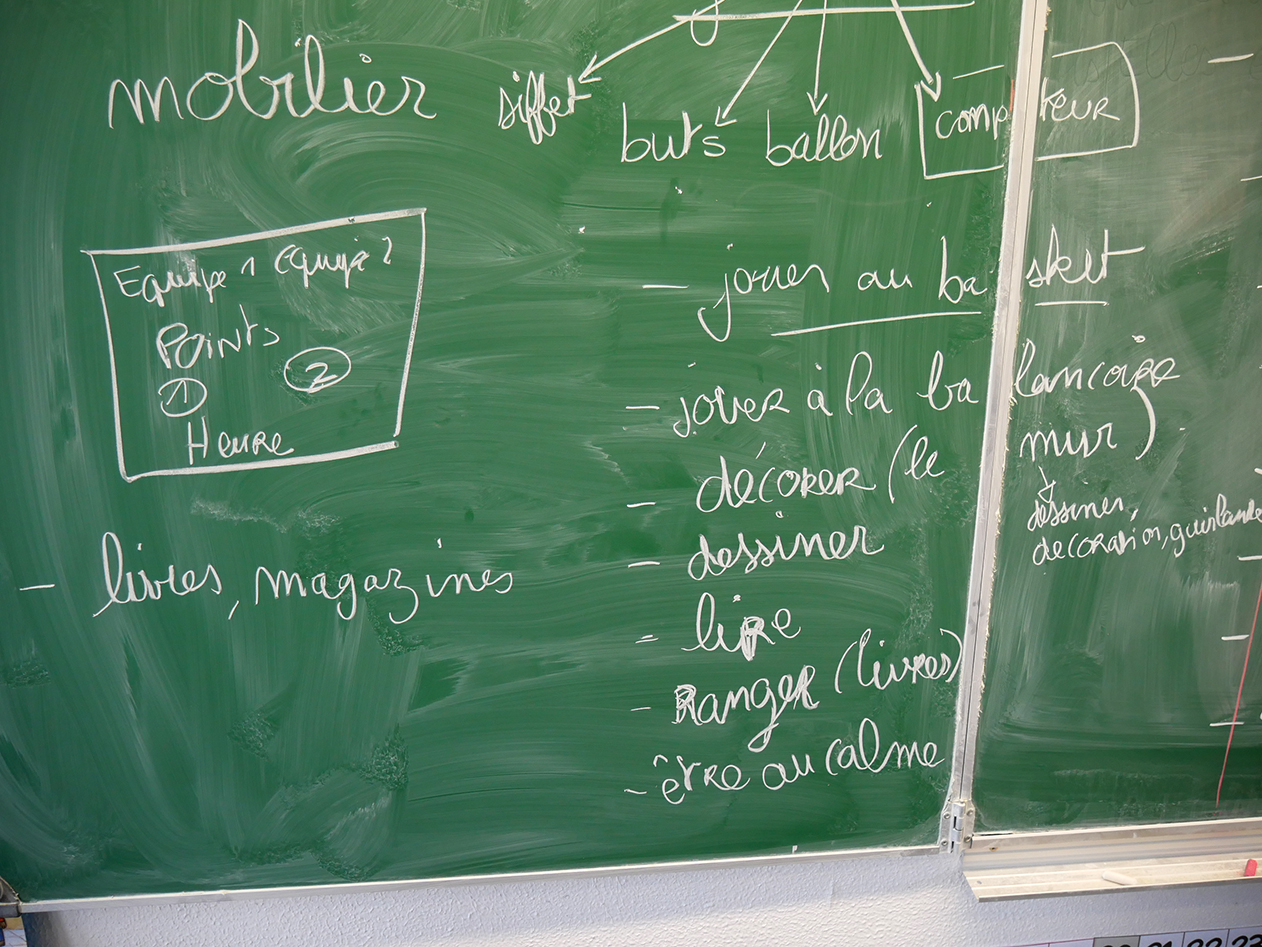 mobilier
sifflet
buts ballon compteur
Equipe 1 Equipe 2
Points
1 2
Heure
- livres, magazines
- jouer au basket
- jouer à la balançoire
- décorer (le mur)
dessiner,
decoration, guirlande
- dessiner
- lire
- Ranger (livres)
- être au calme